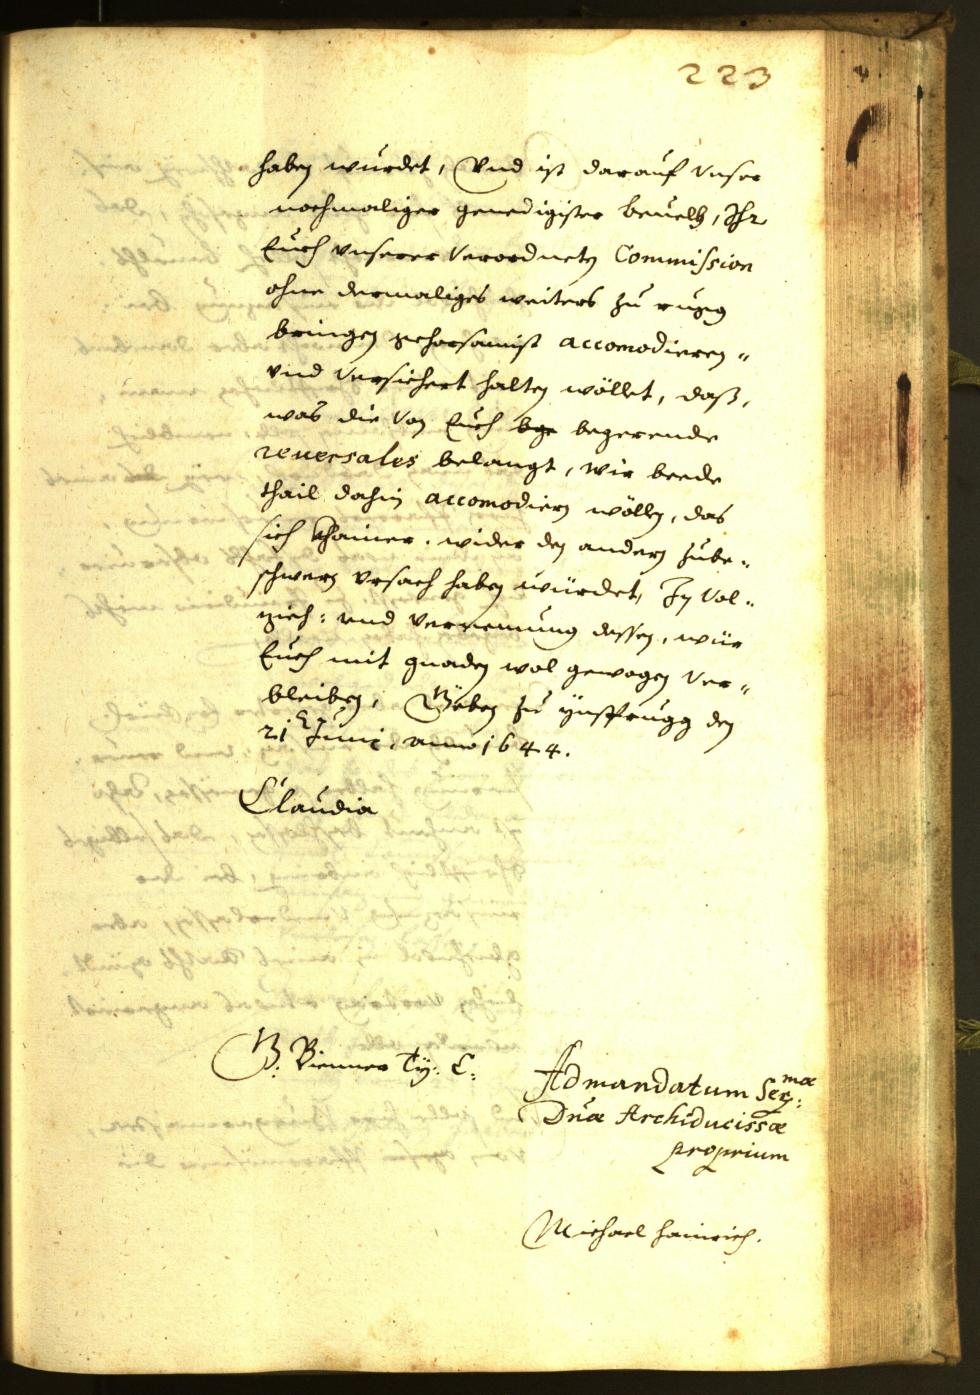 223
haben wurdet, Vnd ist darauf Vnser
nochmaliger genedigister beuelh, Ihr
Euch vnserer Verordneten Commission
ohne dermaliges weiters zu
bringen gehorsamist accomodieren
vnd Versichert halten wöllet, daß,
was die Von Euch bge begerende
reuersales belangt, wir beede
thail dahin accomodiern wöllen, das
sich khainer, wider den andern zube-
schwern Vrsach haben würdet, In Vol-
zieh: vnd dessen, wür
Euch mit gnaden wol gewogen Ver-
bleiben, Geben zu ynsprugg den
21 Juni, anno 1644.
Claudia
Bienner Ty: C:
Ad mandatum Ser:mae
Dnae Archiducissae
proprium
Michael hainrich.